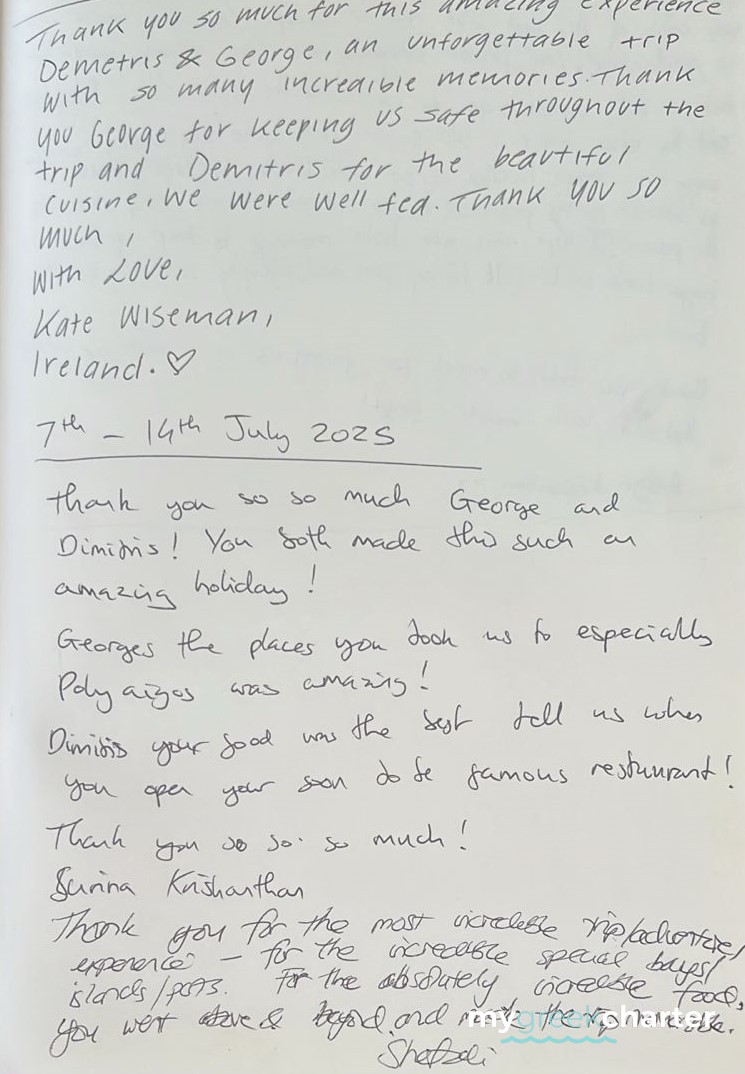 Thank you so much for this amazing experience
Demetris & George, an unforgettable trip
with so many incredible memories. Thank
you George for keeping us safe throughout the
trip and Demitris for the beautiful
cuisine, we were well fed. Thank you so
much,
with Love,
Kate Wiseman,
Ireland. ♡
7th - 14th July 2025
thank you so so much George and
Dimitris! You both made this such an
amazing holiday!
Georges the places you took us to especially
Poly aigos was amazing!
Dimitris your food was the best tell us when
you open your soon to be famous restuurant!
Thank you so so so much!
Krishanthan
Thank you for the most increcible trip/adventure/
experence - for the increcible special bays/
islands/ports. For the absolutely increcible food,
you went above & beyond and made the trip
mygreekcharter